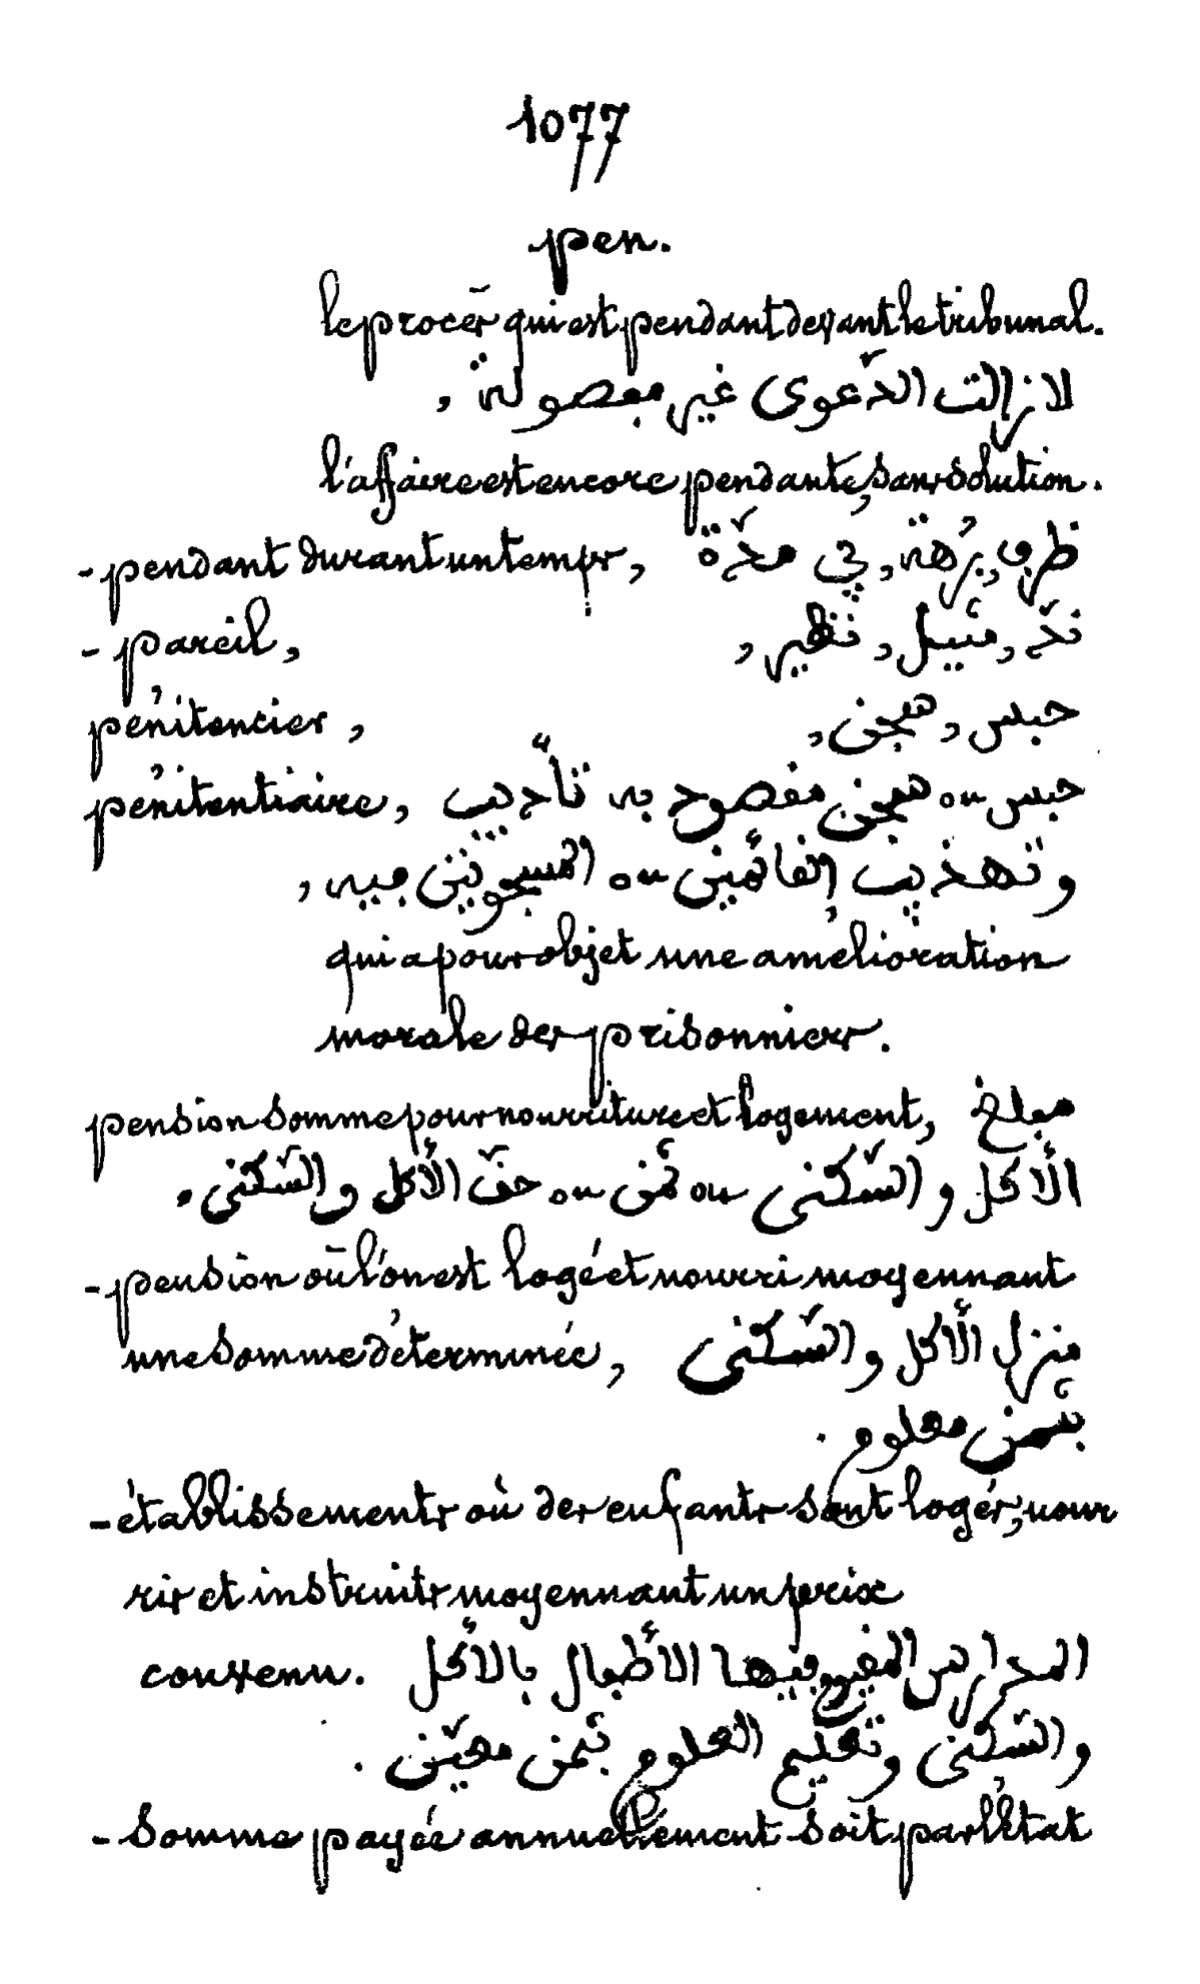 1077
pen.
le procès qui est pendant devant le tribunal.
لا زالت الدّعوى غير مفصولة ,
l'affaire est encore pendante, sans solution.
- pendant durant un temps, ظرف, بُرهة, في مدّة
- pareil, ندّ, مثيل, نظير,
pénitencier, حبس, سجن,
pénitentiaire, حبس ou سجن مقصود به تأديب
وتهذيب القائمين ou المسجونين فيه,
qui a pour objet une amélioration
morale des prisonniers.
pension somme pour nourriture et logement, مبلغ
الأكل و السّكنى ou ثمن ou حقّ الأكل و السّكنى.
- pension où l'on est logé et nourri moyennant
une somme déterminée, منزل الأكل و السّكنى
بثمن معلوم.
- établissements où des enfants sont logés, nour
ris et instruits moyennant un prix
convenu. المدارس المقيم فيها الأطفال بالأكل
والسّكنى وتعليم العلوم بثمن معيّن.
- somme payée annuellement soit par l'état